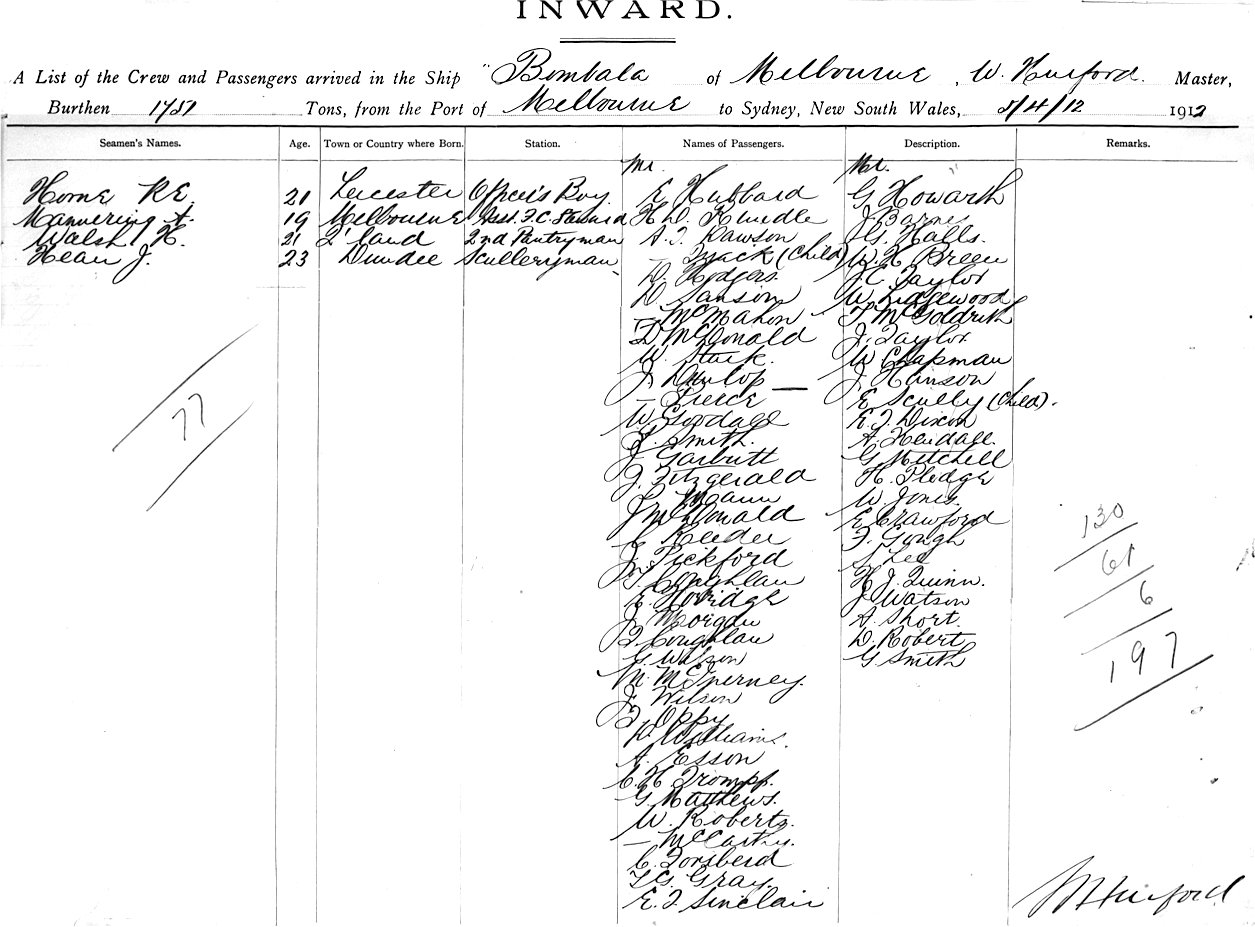 INWARD.
A List of the Crew and Passengers arrived in the Ship "Bombala of Melbourne, W. Hurford. Master,
Burthen 1751 Tons, from the Port of Melbourne to Sydney, New South Wales, 5/4/12 1912
Seamen's Names. Age. Town or Country where Born. Station. Names of Passengers. Description. Remarks.
Mr. Mr.
Horne R E 21 Leicester Officer's Boy E Hubbard G Howarth
Mannering A. 19 Melbourne Asst. F.C. Steward H D. J Barnes
Walsh H. 21 Q'land 2nd Pantryman A. J. Dawson J G. Halls.
Hean J. 23 Dundee Sculleryman — (Child) W. H Breen
D. Hodgers J C Taylor
D Sanson W Ledgewood
— McMahon P McGoldrith
D McDonald J. Taylor
W. Stark. W Chapman
J Dunlop — J Hanson
— Pierce E Scully (Child).
W Goodall E. J. Dixon
J. Smith. A Kendall.
J Garbutt G Mitchell
J. Fitzgerald H. Pledge
J. Mann W Jones.
J McDonald E Crawford
C Reeder F. Gough
J. Pickford S Lee
T. Coughlan H J. Quinn.
E. Horridge J Watson
J Morgan A. Short.
J. Coughlan D. Robert
G. Watson G Smith
M.
J. Wilson
J Oppy
D Williams.
A. Esson
C. H Trompf.
G. Matthews.
W. Roberts.
— McCarthy.
C.
T G. Gray.
E. J. Sinclair
77
130
61
6
197
W Hurford